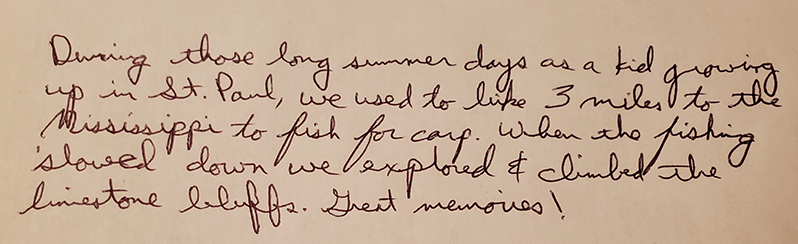 During those long summer days as a kid growing
up in St. Paul, we used to bike 3 miles to the
Mississippi to fish for carp. When the fishing
slowed down we explored & climbed the
limestone bluffs. Great memories!